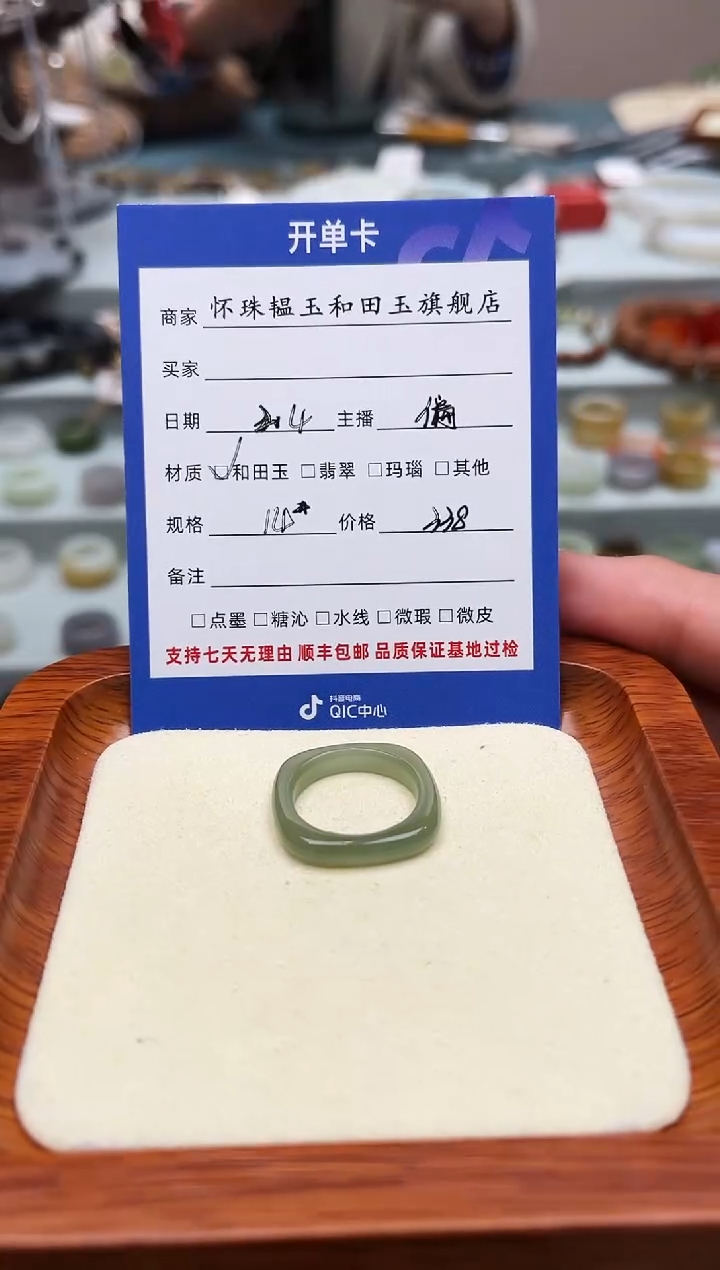 开单卡
商家 怀珠韫玉和田玉旗舰店
买家
日期 2.4 主播
材质 ☑和田玉 □翡翠 □玛瑙 □其他
规格 价格 338
备注
□点墨 □糖沁 □水线 □微瑕 □微皮
支持七天无理由 顺丰包邮 品质保证基地过检
抖音电商
QIC中心